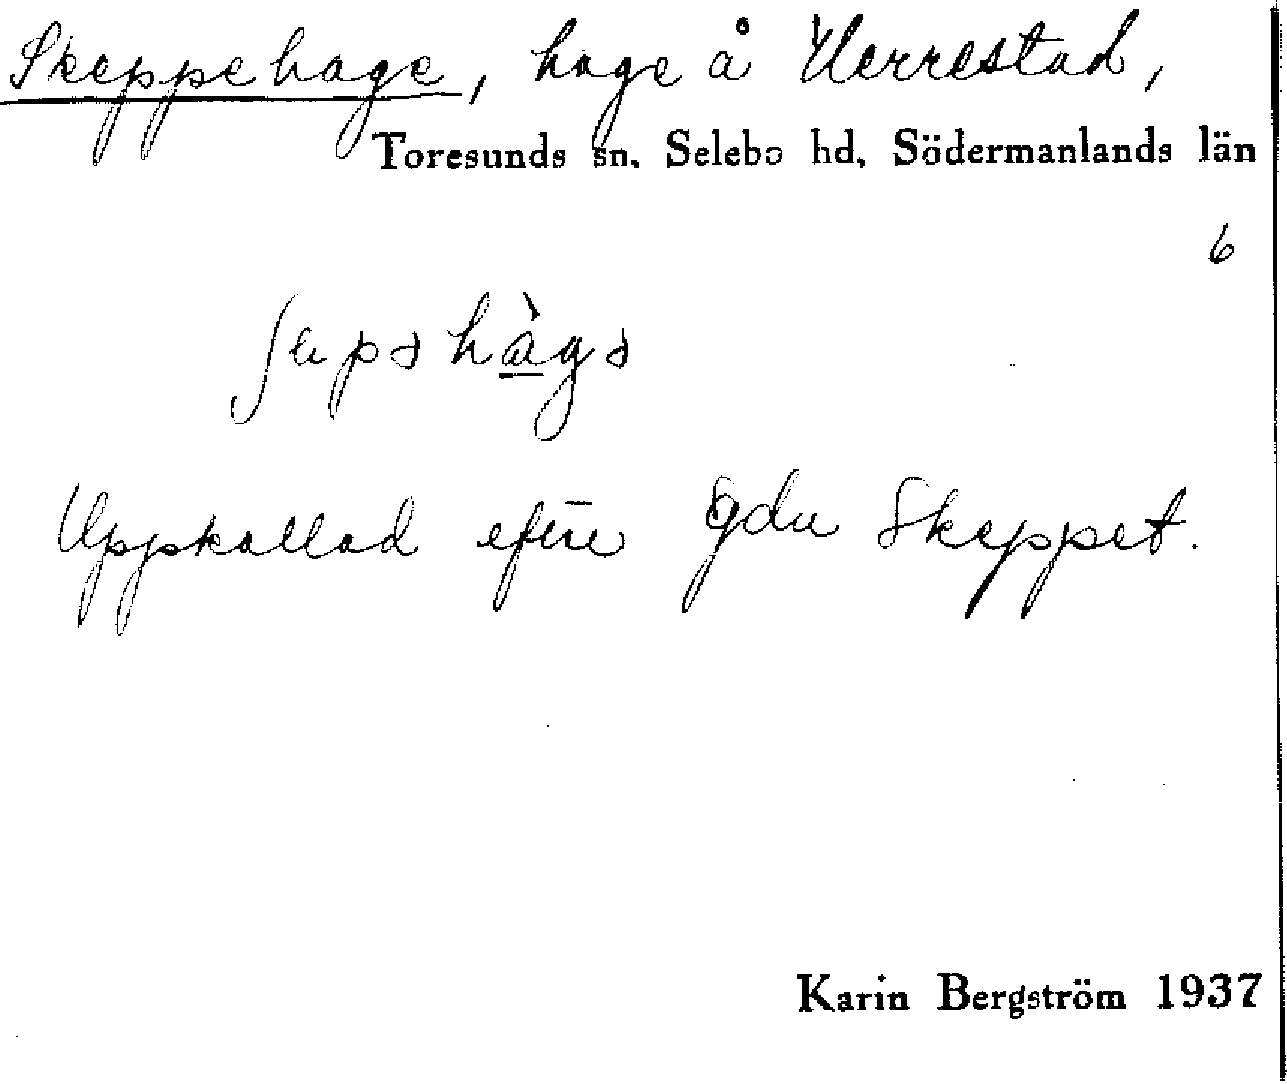 Skeppehage, hage å Herrestad,
Toresunds sn. Selebo hd. Södermanlands län
6
Uppkallad efter gdn Skeppet.
Karin Bergström 1937